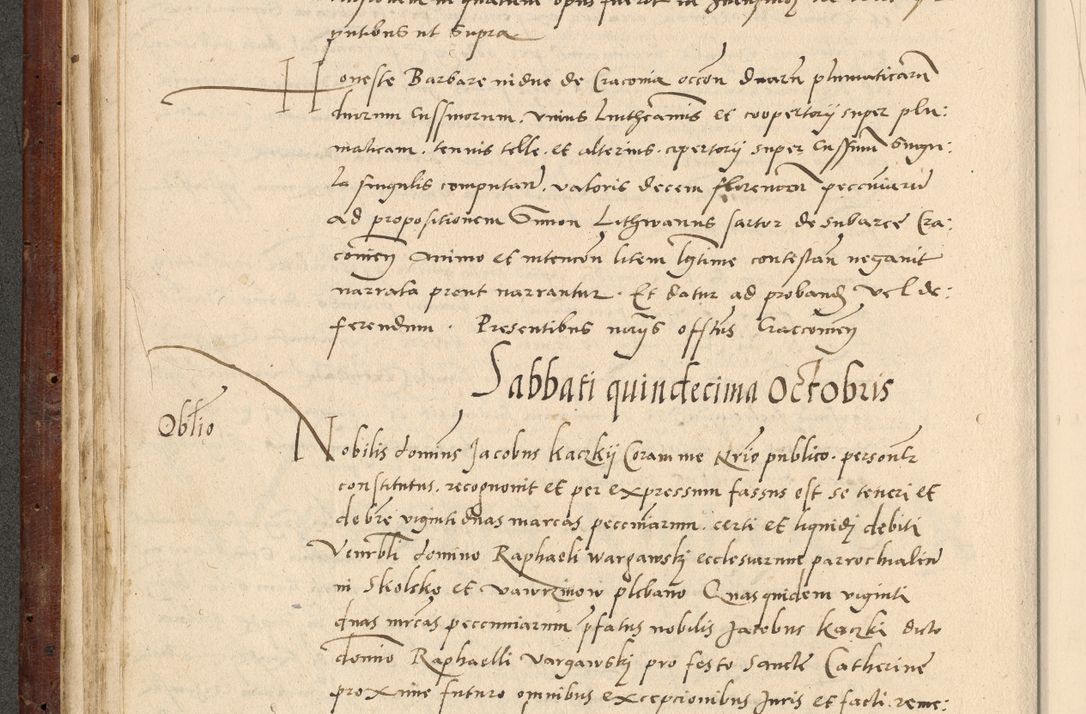 putibus ut supra
Honeste Barbare vidue de Cracovia occōn duarū plumaticarū
duorum cussinorum, unius linthiaminis et coopertorij super plu:
maticam, tenuis telle, et alterius copertorij super cussinū singu:
la singulis computan̄, valoris decem florenorū pecuniarū
ad propositionem Simon Lithwanus sartor de subarce Cra:
coviēn animo et intencōn litem lḡtime contestan̄ negavit
narrata prout narrantur. Et datur ad proband̄ vel de:
ferendum. Presentibus norijs offtus Cracovien̄
Sabbati quindecima Octobris
Oblīo
Nobilis domīnus Jacobus Kaczkij Coram me Nrīo publico, personlr
constitutus, recognovit et per expressum fassus est se teneri et
debrē viginti duas marcas pecuniarum, certi et liquidj debiti
Venrbli domino Raphaeli wargawskj ecclesiarumē parrochialiū
in Skolsko et vawrzinow plebano Quasquidem viginti
duas mrcas pecunniarum pfatus nobilis Jacobus Kaczki dicto
domīno Raphaelli vargawskj pro festo Sancte Catherine
proxime futuro omnibus excepcionibus Juris et facti reme: